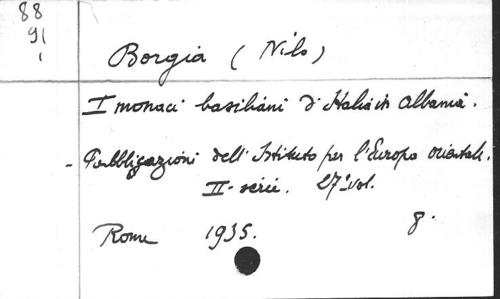 88
91
1
Borgia (Nilo)
I monaci basiliani d'Italia in Albania.
- Pubblicazioni dell'Istituto per l'Europa orientale.
II- serie. 27° vol.
Rome 1935. 8°